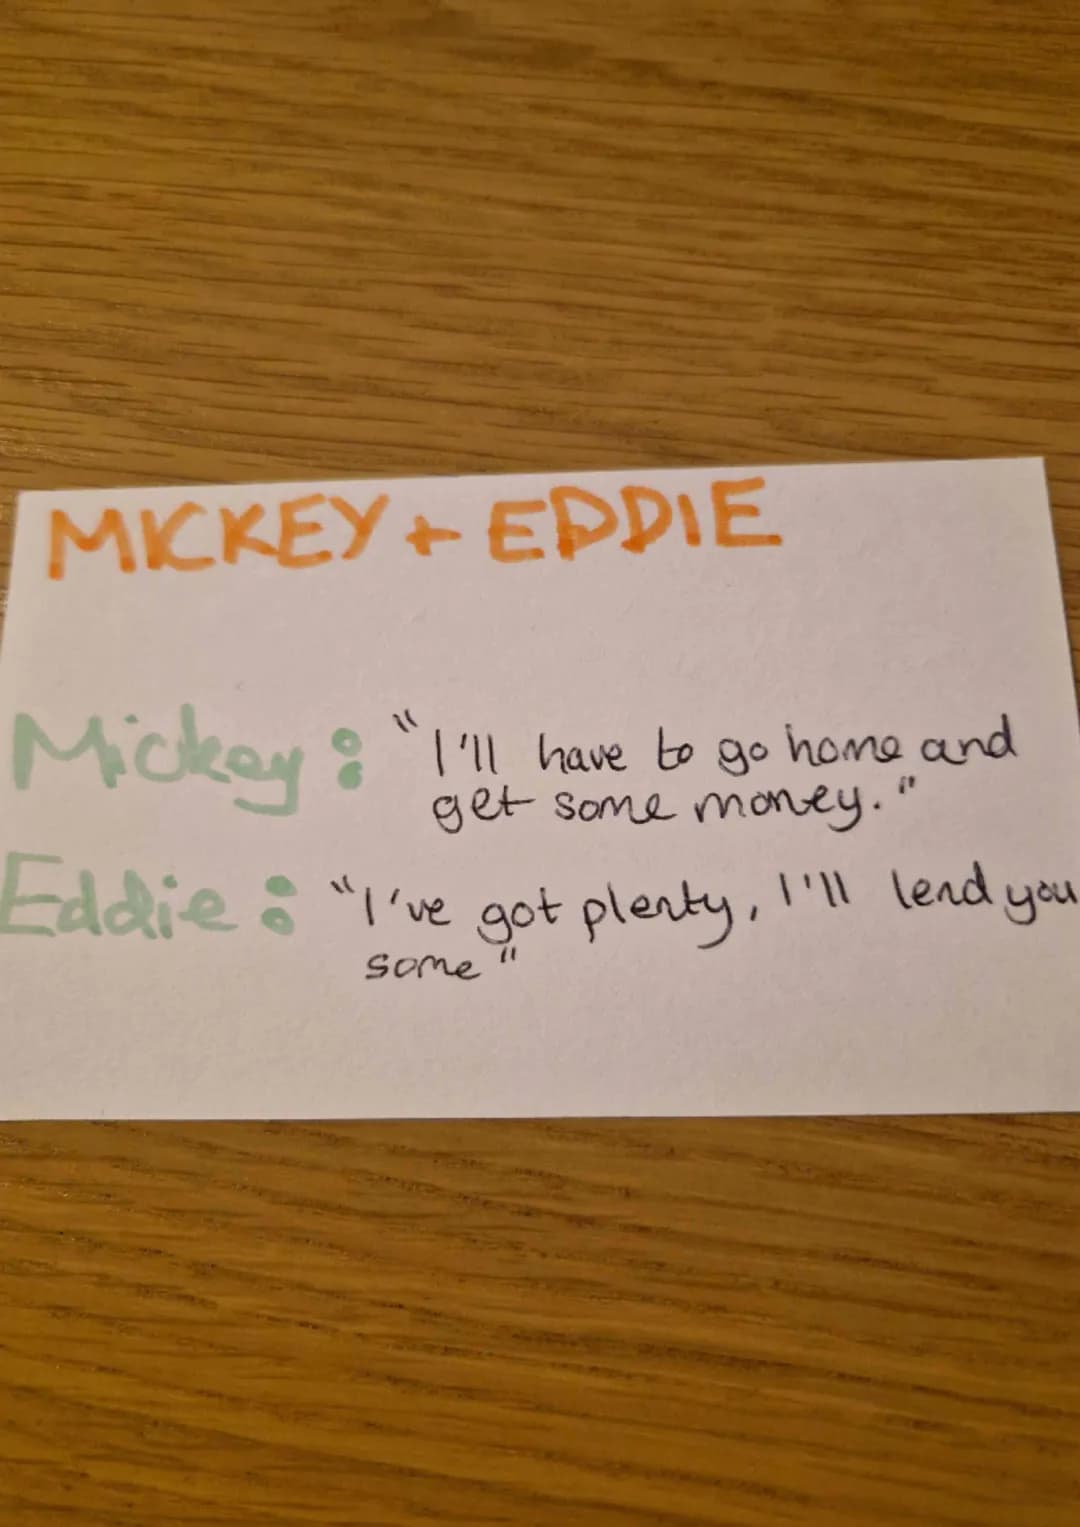 MICKEY + EDDIE
Mickey: "I'll have to go home and
get some money."
Eddie: "I've got plenty, I'll lend you
some"